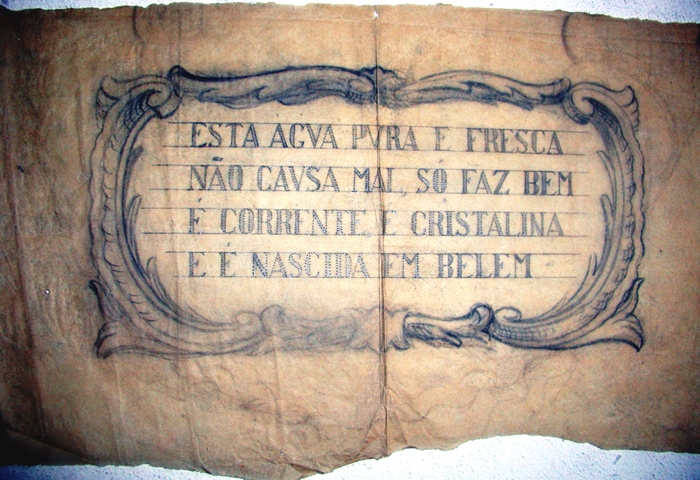 ESTA AGVA PVRA E FRESCA
NÃO CAVSA MAL, SÓ FAZ BEM
É CORRENTE E CRISTALINA
E É NASCIDA EM BELEM